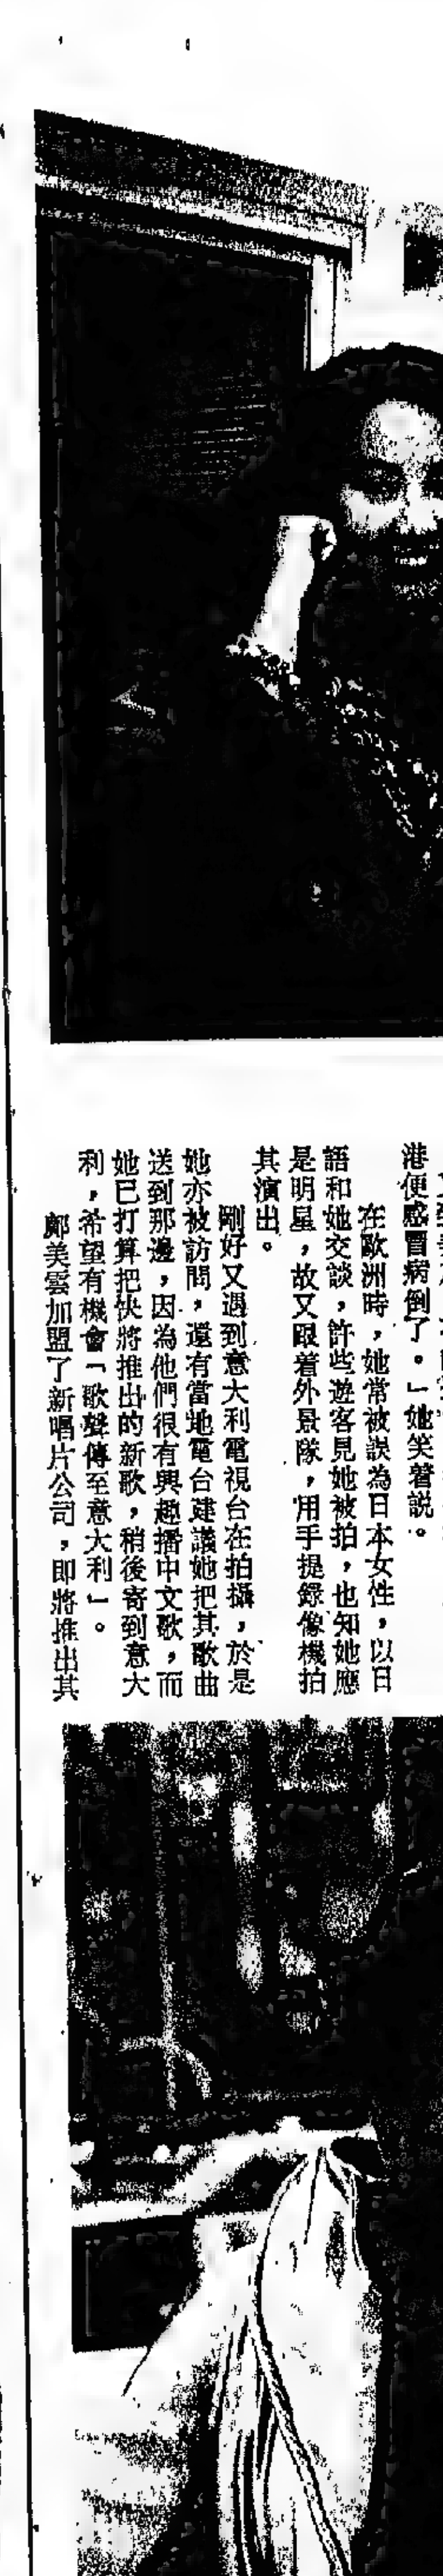 港便感冒病倒了。」她笑着説。
在歐洲時，她常被誤為日本女性，以日
語和她交談，許些遊客見她被拍，也知她應
是明星，故又跟着外景隊，用手提錄像機拍
其演出。
剛好又遇到意大利電視台在拍攝，於是
她亦被訪問，還有當地電台建議她把其歌曲
送到那邊，因為他們很有興趣播中文歌，而
她已打算把快將推出的新歌，稍後寄到意大
利，希望有機會「歌聲傳至意大利」。
鄺美雲加盟了新唱片公司，即將推出其